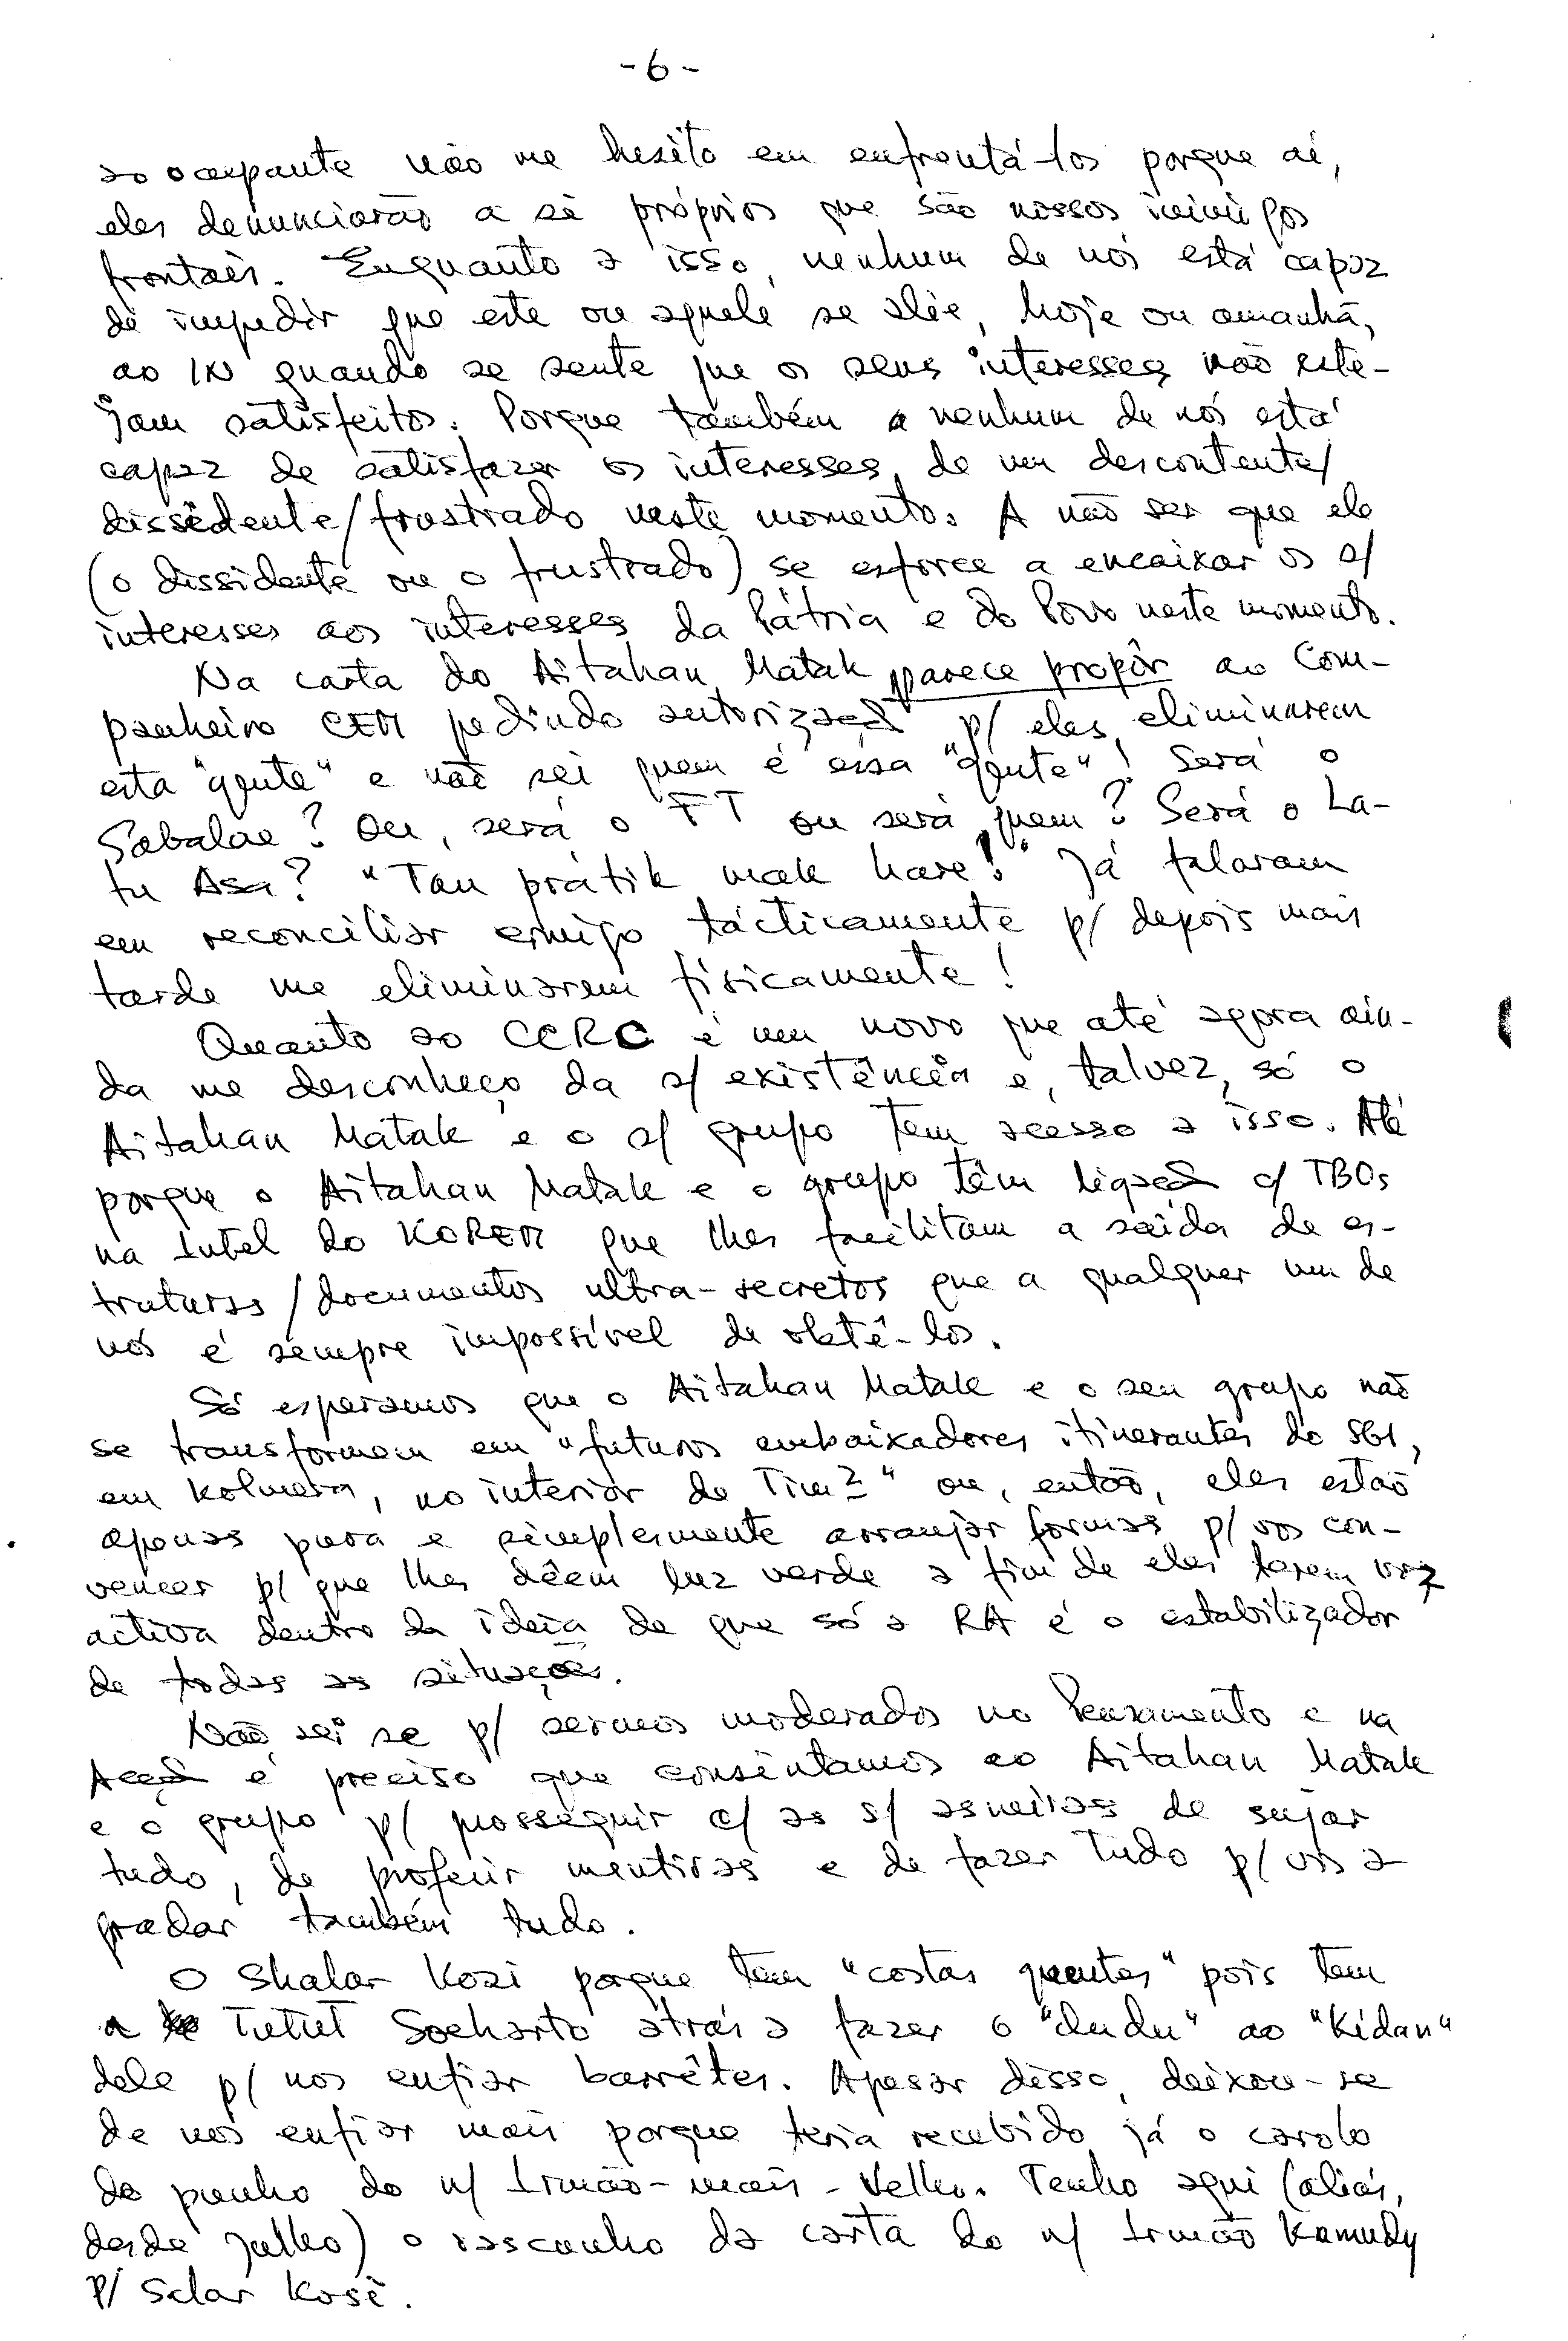 - 6 -
ao ocupante não me hesito em enfrentá-los porque aí,
eles denunciarão a si próprios que são nossos inimigos
frontais. Enquanto a isso, nenhum de nós está capaz
de impedir que este ou aquele se alie, hoje ou amanhã,
ao IN quando se sente que os seus interesses não este-
jam satisfeitos. Porque também a nenhum de nós está
capaz de satisfazer os interesses de um descontente/
dissidente/frustrado neste momento. A não ser que ele
(o dissidente ou o frustrado) se esforce a encaixar os s/
interesses aos interesses da Pátria e do Povo neste momento.
Na carta do Aitahan Matak parece propôr ao Com-
panheiro CEM pedindo autorização p/ eles eliminarem
esta "gente" e não sei quem é essa "gente"! Será o
Sabalae? Ou, será o FT ou será quem? Será o La-
tu Asa? "Tau prátik mak hare!" Já falaram
em reconciliar comigo tácticamente p/ depois mais
tarde me eliminarem físicamente!
Quanto ao CCRC é um novo que até agora ain-
da me desconheço da s/ existência e, talvez, só o
Aitahan Matak e o s/ grupo tem acesso a isso. Até
porque o Aitahan Matak e o grupo têm ligação c/ TBOs
na Intel do KOREM que lhes facilitam a saída de es-
truturas/documentos ultra-secretos que a qualquer um de
nós é sempre impossível de obtê-los.
Só esperamos que o Aitahan Matak e o seu grupo não
se transformem em "futuros embaixadores itinerantes do SGI,
em Kolmera, no interior de Tim?" ou, então, eles estão
apenas pura e simplesmente arranjar formas p/ vos con-
vencer p/ que lhes dêem luz verde a fim de eles terem voz
activa dentro da ideia de que só a RA é o estabilizador
de todas as situações.
Não sei se p/ sermos moderados no Pensamento e na
Acção é preciso que consintamos ao Aitahan Matak
e o grupo p/ prosseguir c/ as s/ asneiras de sujar
tudo, de proferir mentiras e de fazer tudo p/ vos a-
gradar também tudo.
O Shalar Kozi porque tem "costas quentes" pois tem
a Tutut Soeharto atrás a fazer o "dudu" ao "Kidan"
dele p/ nos enfiar barrêtes. Apesar disso, deixou-se
de nos enfiar mais porque teria recebido já o carolo
do punho do n/ Irmão-mais-Velho. Tenho aqui (aliás,
desde Julho) o rascunho da carta do n/ Irmão Kamudy
p/ Salar Kosi.